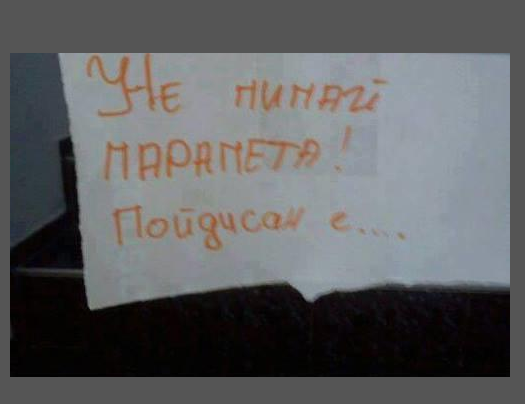 НЕ ПИПАЙ
ПАРАПЕТА!
Пойдисан е....